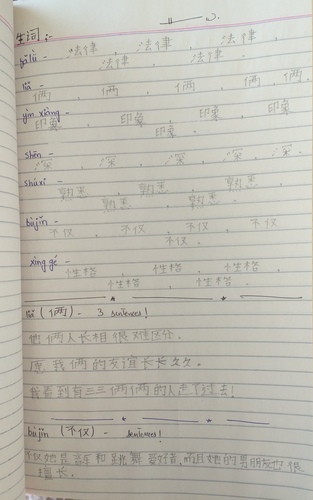 生词:-
fǎlǜ - 法律, 法律, 法律,
法律, 法律.
liǎ - 俩, 俩, 俩, 俩, 俩.
yìn xiàng - 印象, 印象, 印象,
印象, 印象.
shēn - 深, 深, 深, 深, 深.
shúxī - 熟悉, 熟悉, 熟悉,
熟悉, 熟悉.
bùjǐn - 不仅, 不仅, 不仅, 不仅
不仅.
xìng gé - 性格, 性格, 性格,
性格, 性格.
liǎ (俩) - 3 sentences!
他俩人长相很难区分.
愿我俩的友谊长长久久.
我看到有三三俩俩的人走了过去!
bùjǐn (不仅) - sentences!
不仅她是 和跳舞爱好者,而且她的男朋友也很
擅长.